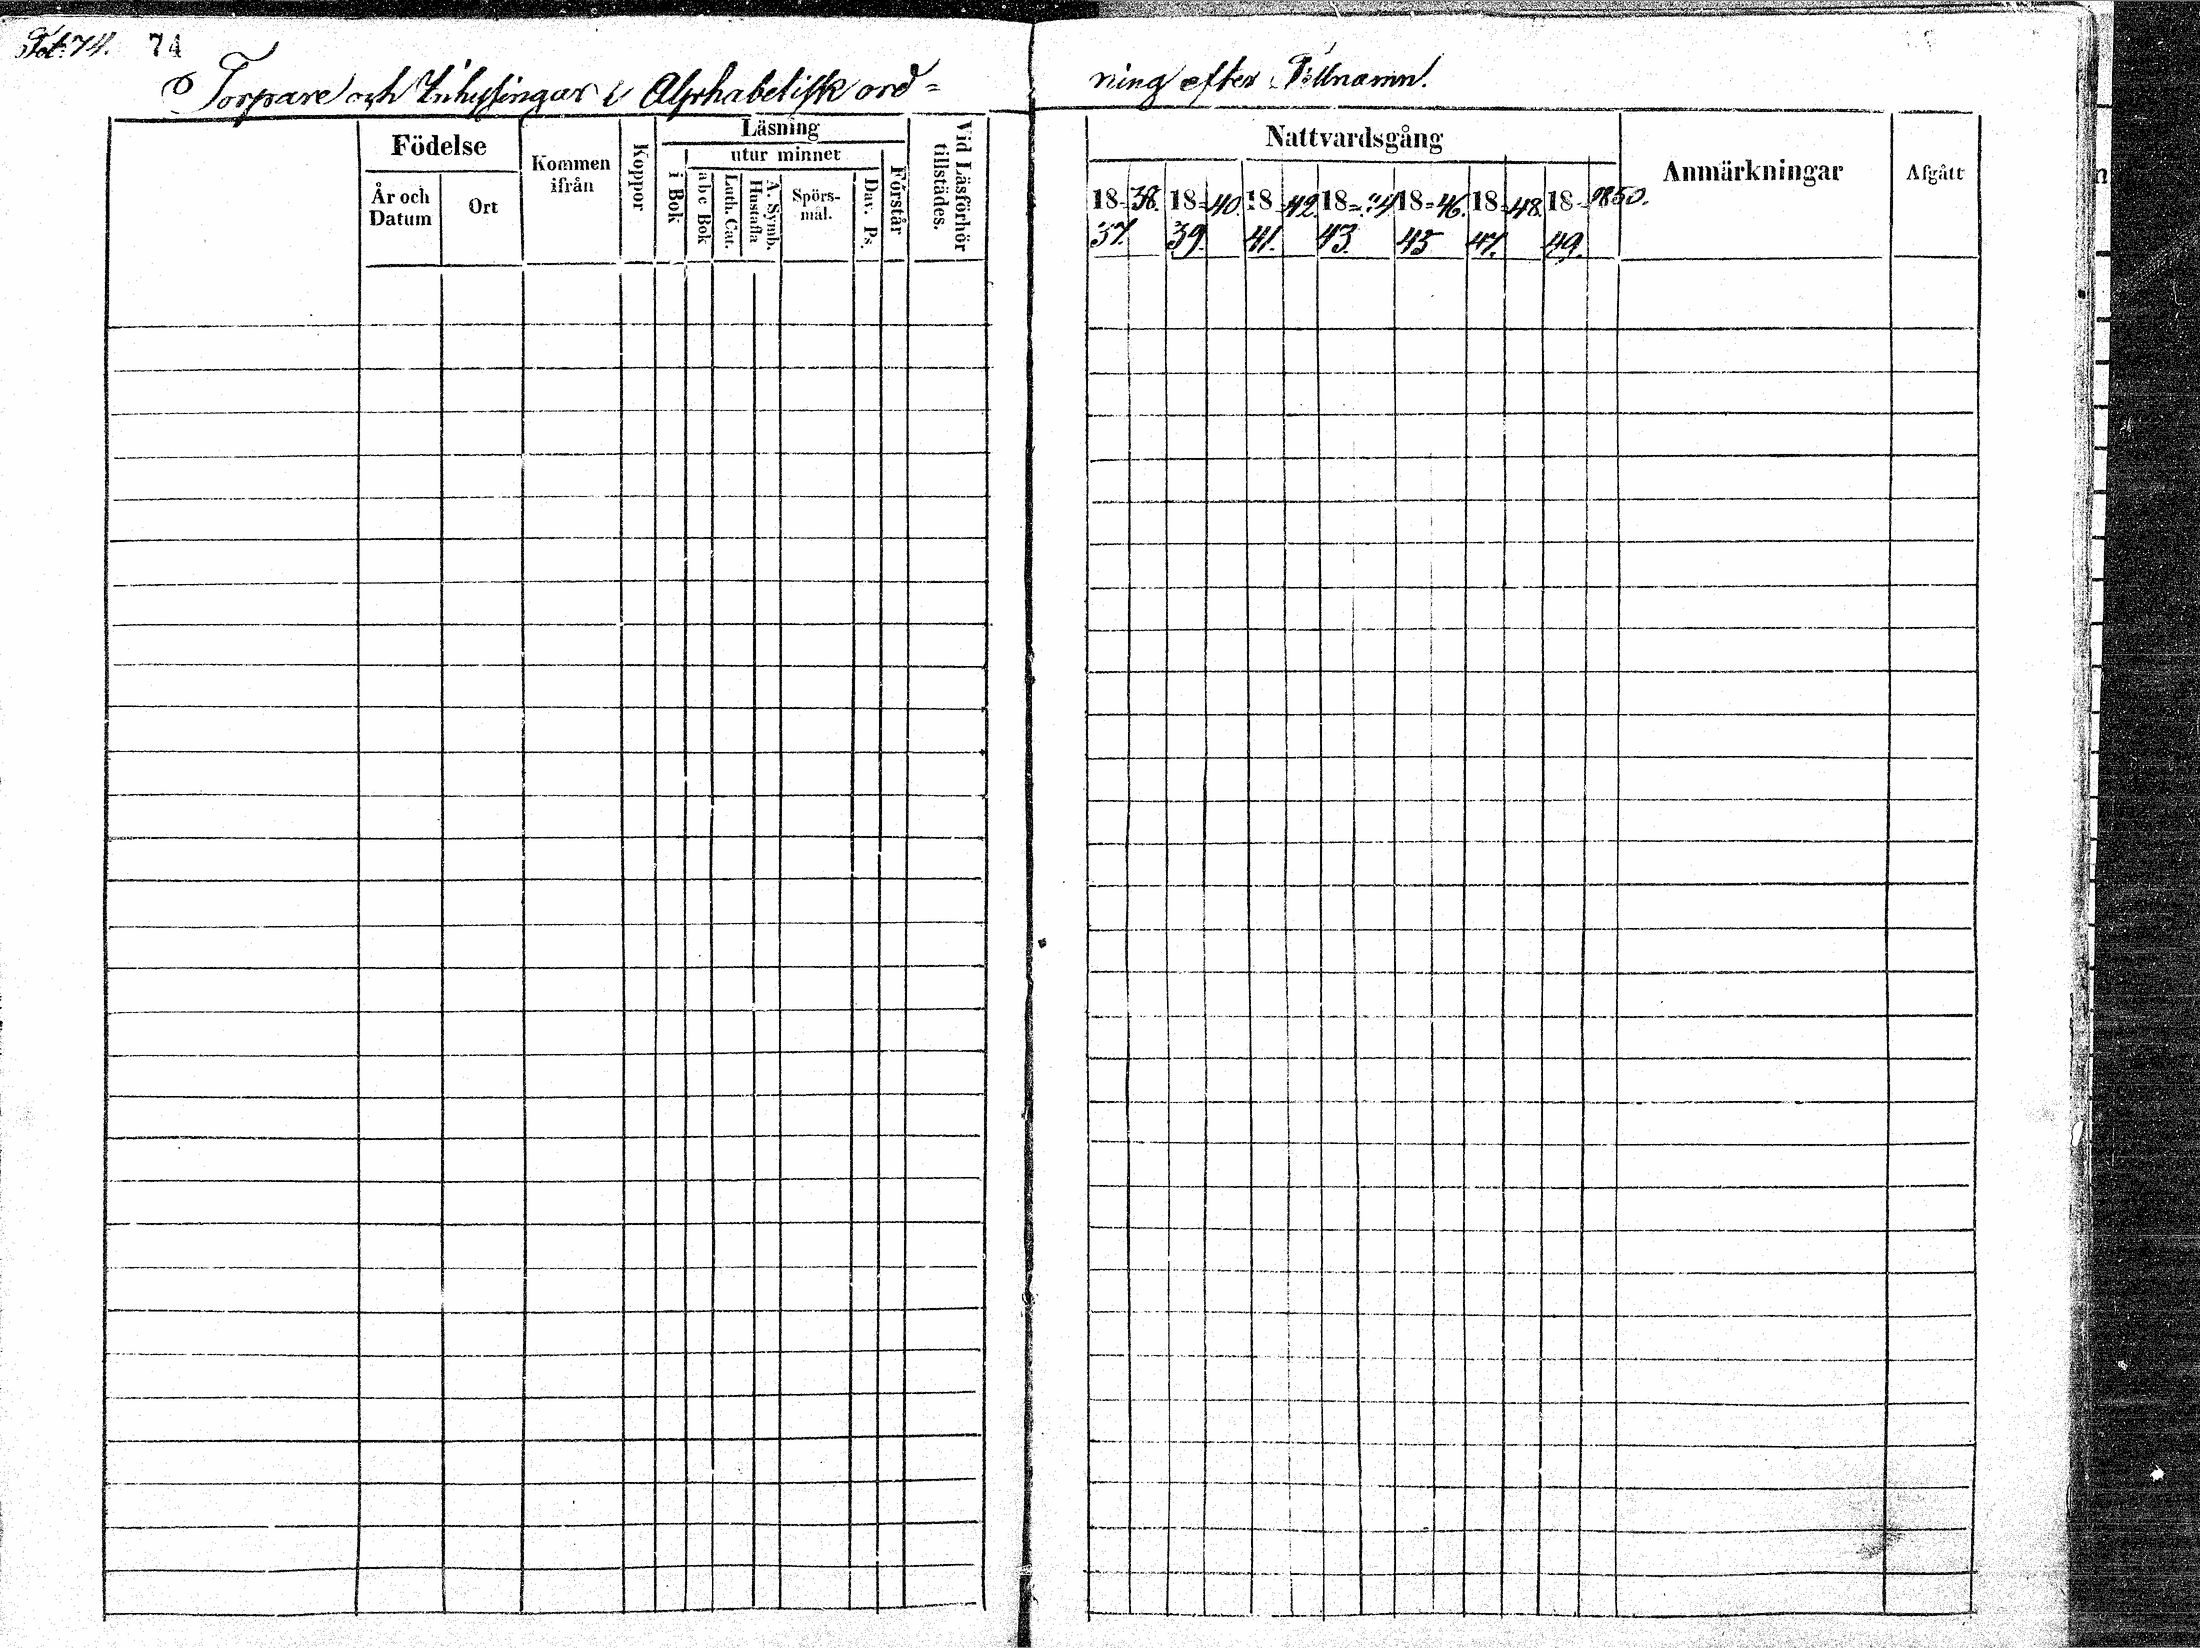 Fol. 74. 74
Torpare och Inhysingar i Alphabetisk ord=
ning efter Tillnamn.
Födelse
År och Datum
Ort
Kommen ifrån
Koppor
Läsning
utur minnet
i Bok
a b c Bok
Luth. Cat.
A. Symb. Hustafla
Spörs-mål.
Dav. Ps.
Förstår
Vid Läsförhör tillstädes.
Nattvardsgång
18=38. 18=40. 18=42. 18=44 18=46. 18=48. 18=1850.
37. 39. 41. 43. 45 47. 49.
Anmärkningar
Afgått